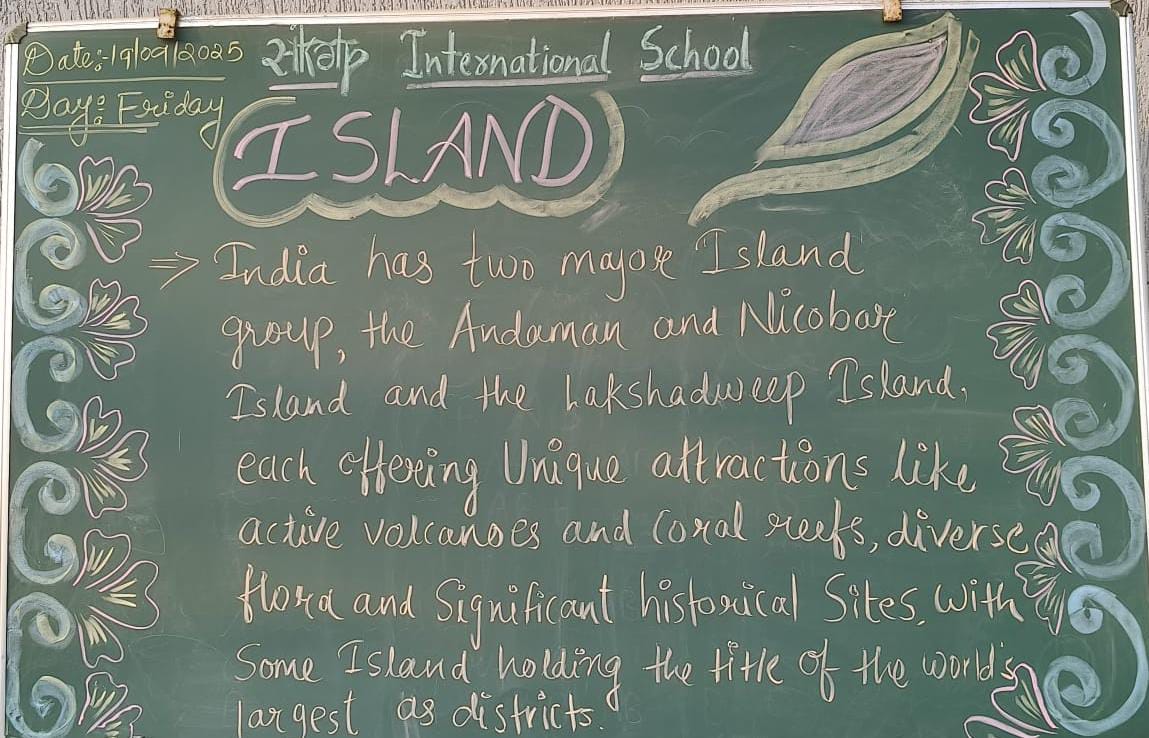 Date:-19/09/2025
Day: Friday
संकल्प International School
ISLAND
⇒ India has two major Island
group, the Andaman and Nicobar
Island and the Lakshadweep Island,
each offering Unique attractions like
active volcanoes and Coral reefs, diverse
flora and Significant historical Sites, With
Some Island holding the title of the world's
largest as districts.